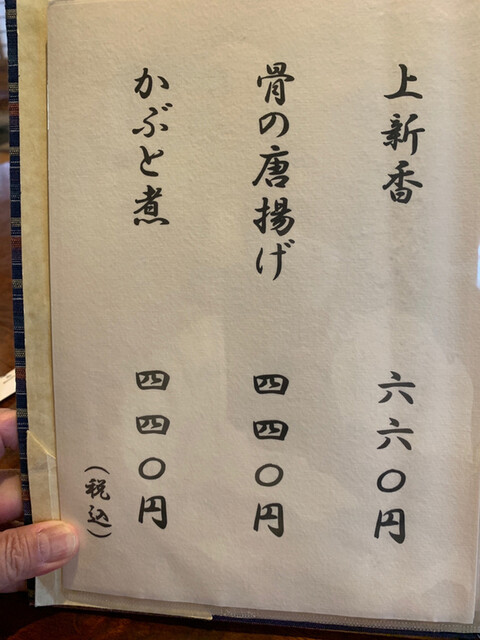 上新香 六六〇円
骨の唐揚げ 四四〇円
かぶと煮 四四〇円
（税込）